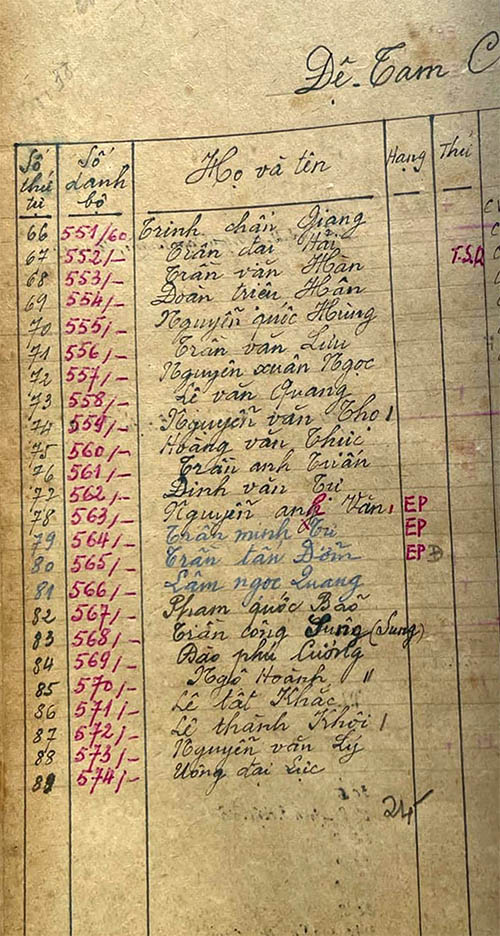 Đệ-Tam C
Số thứ tự Số danh bộ Họ và tên Hạng Thứ
66 551/60 Trinh chấn Giang
67 552/- Trần đại Hải T.S.Q
68 553/- Trần văn Hân
69 554/- Đoàn triều Hân
70 555/- Nguyễn quốc Hùng
71 556/- Trần văn Lưu
72 557/- Nguyễn xuân Ngọc
73 558/- Lê văn Quang
74 559/- Nguyễn văn Thọ /
75 560/- Hoàng văn Thức
76 561/- Trần anh Tuấn
77 562/- Đinh văn Tư
78 563/- Nguyễn anh Văn / EP
79 564/- Trần minh Tú EP
80 565/- Trần tân Đởm EP
81 566/- Lâm ngọc Quang
82 567/- Phạm quốc Bảo
83 568/- Trần công Sung (Sung)
84 569/- Đào phú Cường
85 570/- Ngô Hoành "
86 571/- Lê tất Khắc
87 572/- Lê thành Khôi /
88 573/- Nguyễn văn Lý
89 574/- Uông đại Lực
24